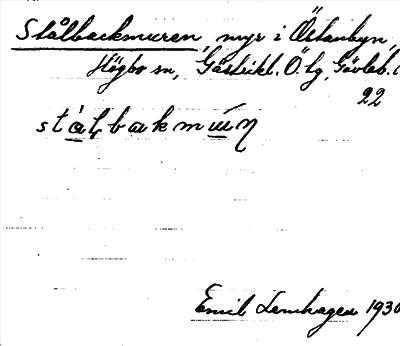 Stålbackmuren, myr i Östanbyn,
Högbo sn, Gästrikl. Ö. tg, Gävleb. l
22
stålbakmuɯn
Emil Lenhagen 1930